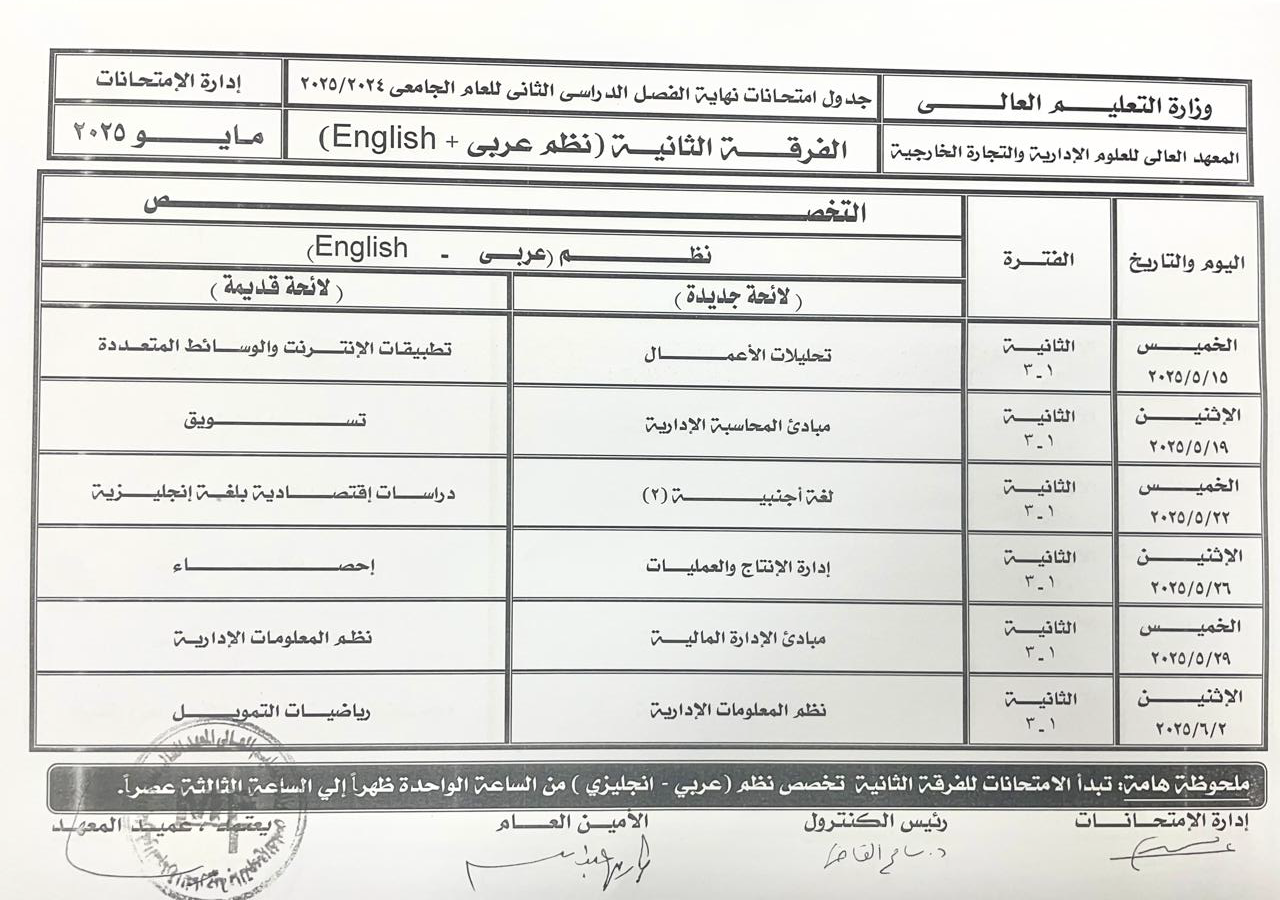 وزارة التعليم العالى
جدول امتحانات نهاية الفصل الدراسى الثانى للعام الجامعى ٢٠٢٥/٢٠٢٤
إدارة الإمتحانات
المعهد العالى للعلوم الإدارية والتجارة الخارجية
الفرقة الثانية (نظم عربى + English)
مايو ٢٠٢٥
اليوم والتاريخ
الفترة
التخصص
نظم (عربى - English)
(لائحة جديدة)
(لائحة قديمة)
الخميس
٢٠٢٥/٥/١٥
الثانية
١ - ٣
تحليلات الأعمال
تطبيقات الإنترنت والوسائط المتعددة
الإثنين
٢٠٢٥/٥/١٩
الثانية
١ - ٣
مبادئ المحاسبة الإدارية
تسويق
الخميس
٢٠٢٥/٥/٢٢
الثانية
١ - ٣
لغة أجنبية (٢)
دراسات إقتصادية بلغة إنجليزية
الإثنين
٢٠٢٥/٥/٢٦
الثانية
١ - ٣
إدارة الإنتاج والعمليات
إحصاء
الخميس
٢٠٢٥/٥/٢٩
الثانية
١ - ٣
مبادئ الإدارة المالية
نظم المعلومات الإدارية
الإثنين
٢٠٢٥/٦/٢
الثانية
١ - ٣
نظم المعلومات الإدارية
رياضيات التمويل
ملحوظة هامة: تبدأ الامتحانات للفرقة الثانية تخصص نظم (عربي - انجليزي) من الساعة الواحدة ظهراً إلي الساعة الثالثة عصراً.
إدارة الإمتحانات
رئيس الكنترول
الأمين العام
يعتمد، عميد المعهد